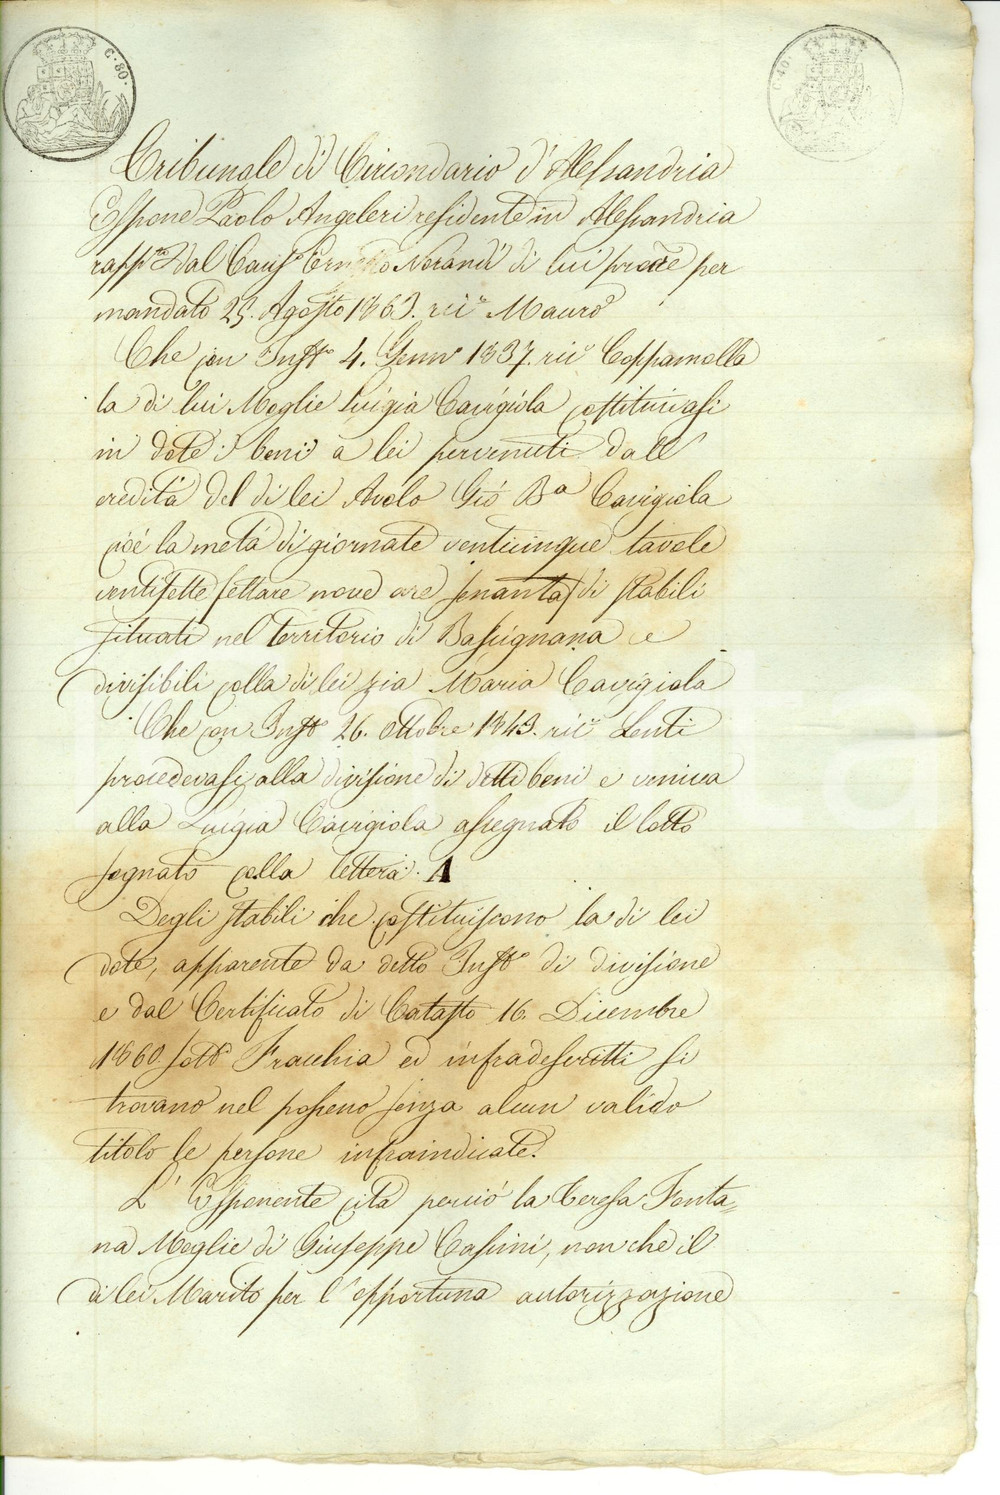 C. 80.
C. 40.
Tribunale di Circondario d'Alessandria
Espone Paolo Angeleri residente in Alessandria
rapp.to dal Caus.o Ernesto Norandi di lui proc.e per
mandato 25. Agosto 1863. ric.o Mauro
Che con Inst.o 4. Genn.o 1837. ric.o Coppamolla
la di lui Moglie Luigia Cavigiola costituivasi
in dote i beni a lei pervenuti dall'
eredità del di lei Avolo Gio B.a Cavigiola
cioè la metà di giornate venticinque tavole
ventisette (ettare nove are sessanta) di stabili
situati nel territorio di Bassignana e
divisibili colla di lei zia Maria Cavigiola
Che con Inst.o 26. Ottobre 1843. ric.o Lenti
procedevasi alla divisione di detti beni e veniva
alla Luigia Cavigiola assegnato il lotto
segnato colla lettera. A
Degli stabili che costituiscono la di lei
dote, apparente da detto Inst.o di divisione
e dal Certificato di Catasto 16. Dicembre
1860. sott.o Fracchia ed infradescritti si
trovano nel possesso senza alcun valido
titolo le persone infraindicate.
L'Esponente cita perciò la Teresa Fonta=
na Moglie di Giuseppe Cassini, non che il
di lei Marito per l'opportuna autorizzazione